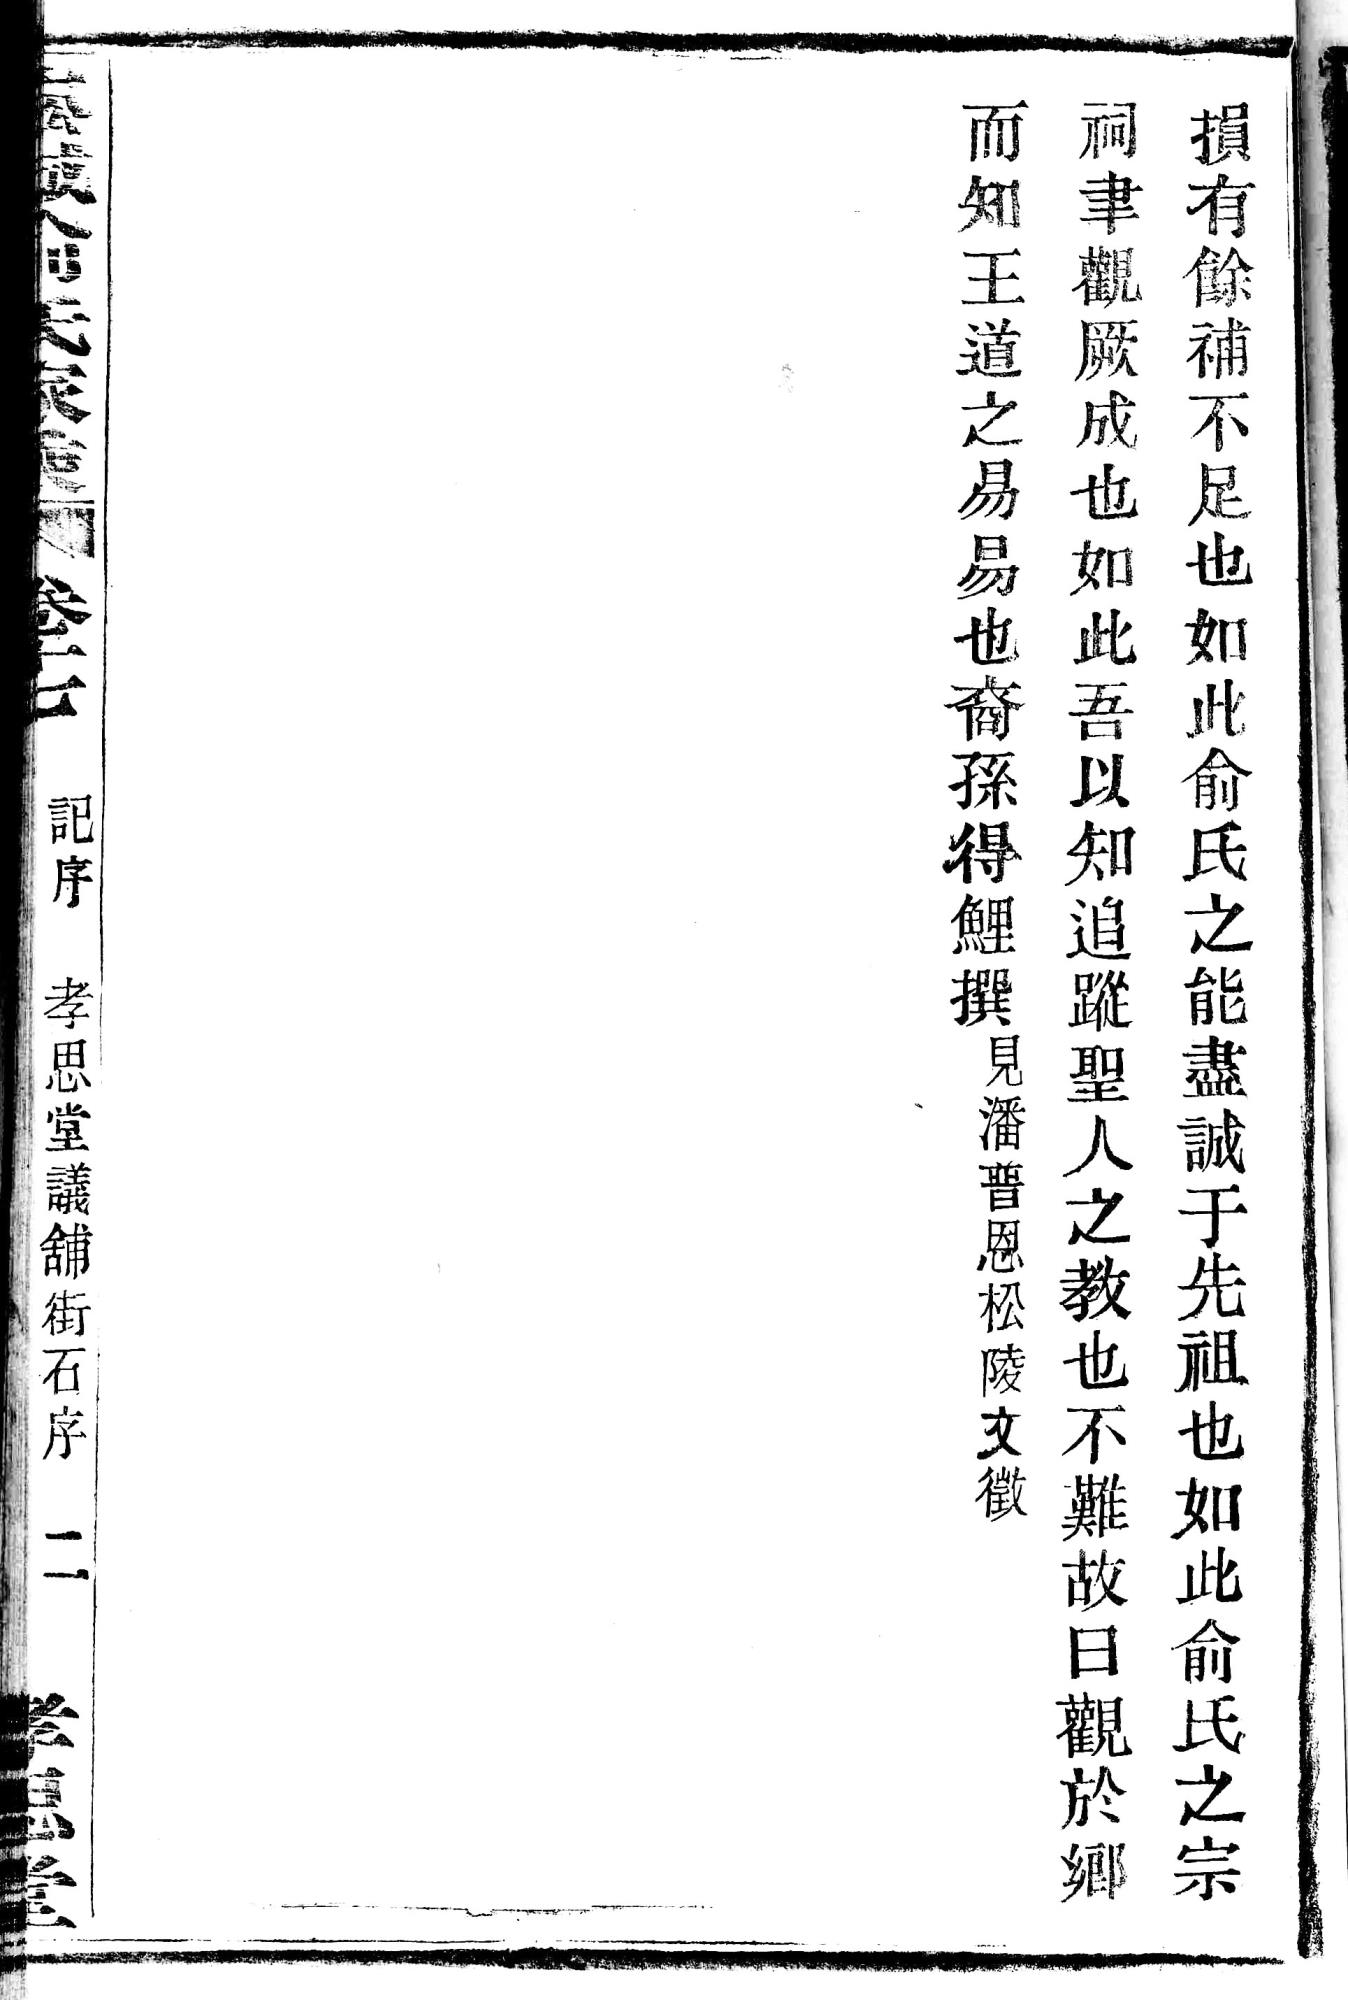 損有餘補不足也如此俞氏之能盡誠于先祖也如此俞氏之宗
祠聿觀厥成也如此吾以知追蹤聖人之教也不難故曰觀於鄉
而知王道之易易也裔孫得鯉撰見潘晋恩松陵文徵
氏家 卷十七 記序 孝思堂議舖街石序 二 孝思堂